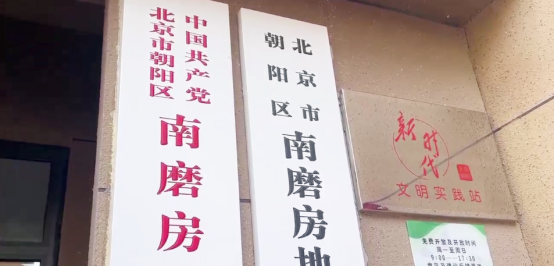 中国共产党
北京市朝阳区
南磨房
北京市
朝阳区
南磨房地
新时代
文明实践站
免费开放及开放时间
周一至周日
9:00——17:30